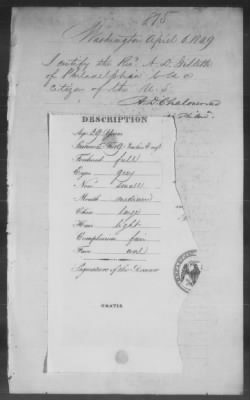 875
Washington April 6, 1849
I certify the Rev. A. D.
of Philadelphia to be a
Citizen of the U.S.
A. D. Chaloner
DESCRIPTION
Age, 29 Years
Stature, 5 Feet
Forehead full
Eyes gray
Nose small
Mouth medium
Chin large
Hair light
Complexion fair
Face oval
Signature of the Bearer
GRATIS.